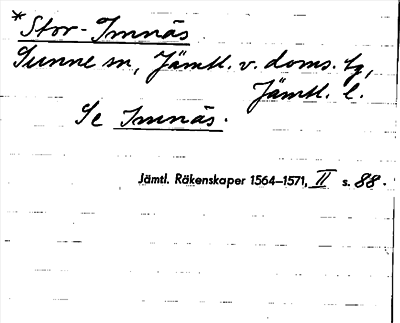 *Stor-Imnäs
Sunne sn, Jämtl. v. doms. hg,
Jämtl. l.
Se Imnäs.
Jämtl. Räkenskaper 1564–1571, II s. 88.